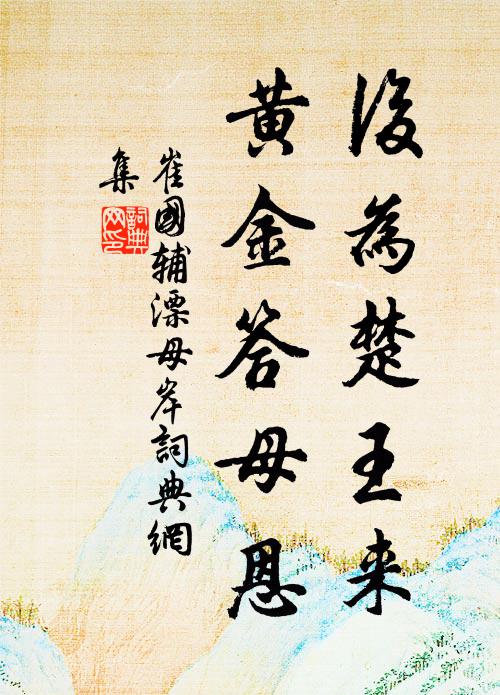 後為楚王来
黄金答母恩
崔國輔漂母岸詞典網
集
詞典
网印